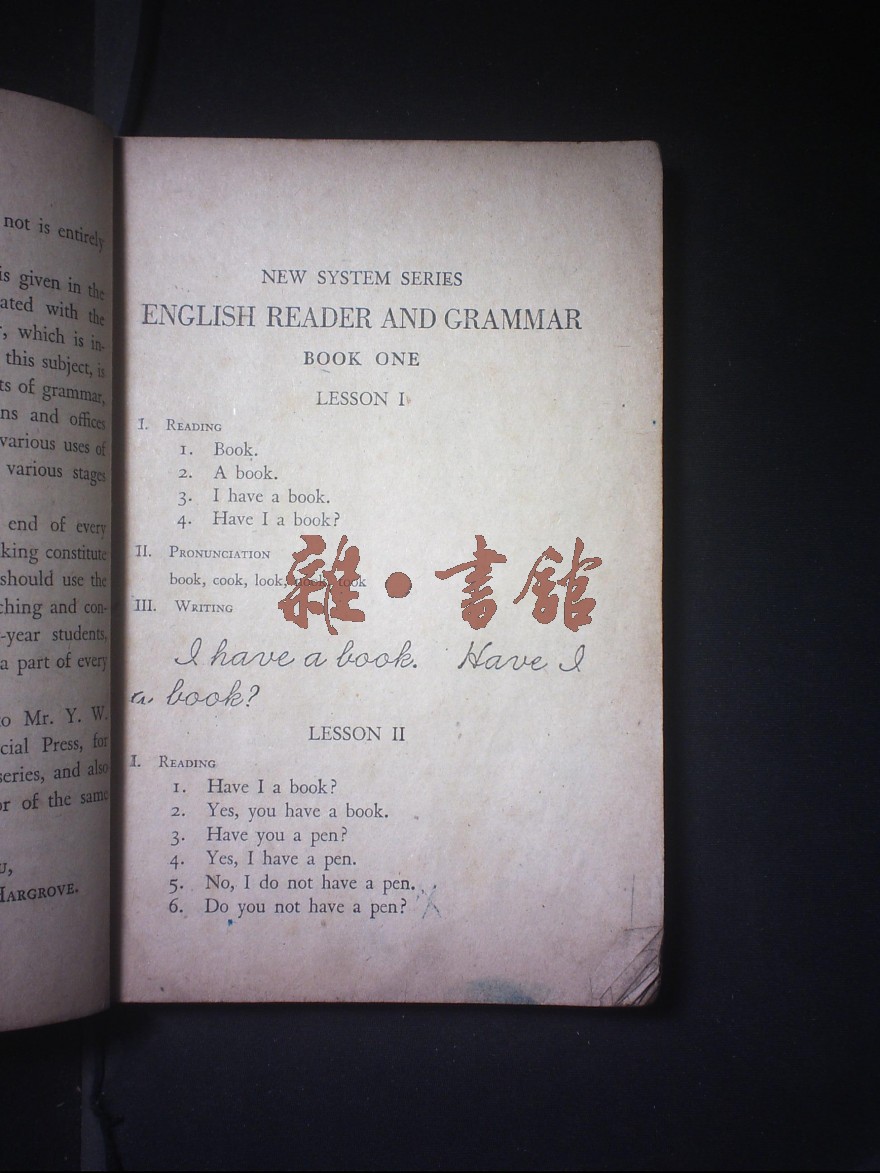 not is entirely
is given in the
ated with the
, which is in-
this subject, is
ts of grammar,
ns and offices
various uses of
various stages
end of every
king constitute
should use the
ching and con-
-year students,
a part of every
to Mr. Y. W.
cial Press, for
series, and also
or of the same
U,
HARGROVE.
NEW SYSTEM SERIES
ENGLISH READER AND GRAMMAR
BOOK ONE
LESSON I
I. READING
1. Book.
2. A book.
3. I have a book.
4. Have I a book?
II. PRONUNCIATION
book, cook, look, took
III. WRITING
雜·書館
I have a book. Have I
a book?
LESSON II
I. READING
1. Have I a book?
2. Yes, you have a book.
3. Have you a pen?
4. Yes, I have a pen.
5. No, I do not have a pen.
6. Do you not have a pen?